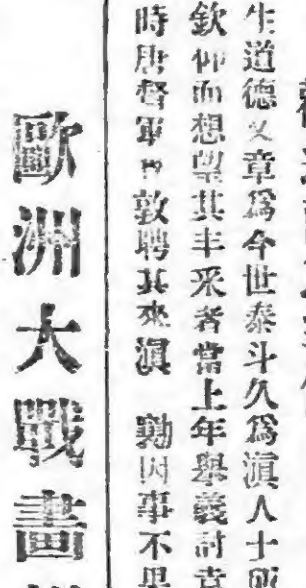 生道德文章為今世泰斗久為滇人士所
欽仰而想望其丰采者當上年舉義討袁
時唐督軍曾敦聘其來滇 勷因事不果
歐洲大戰畫